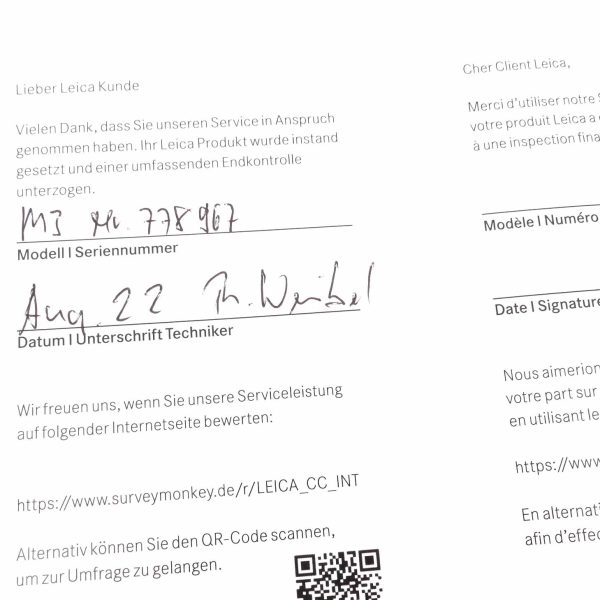 Lieber Leica Kunde
Vielen Dank, dass Sie unseren Service in Anspruch
genommen haben. Ihr Leica Produkt wurde instand
gesetzt und einer umfassenden Endkontrolle
unterzogen.
M3 Nr. 778967
Modell | Seriennummer
Aug. 22 Th. Weibel
Datum | Unterschrift Techniker
Wir freuen uns, wenn Sie unsere Serviceleistung
auf folgender Internetseite bewerten:
https://www.surveymonkey.de/r/LEICA_CC_INT
Alternativ können Sie den QR-Code scannen,
um zur Umfrage zu gelangen.
Cher Client Leica,
Merci d'utiliser notre S
votre produit Leica a
à une inspection fina
Modèle | Numéro
Date | Signature
Nous aimerion
votre part sur
en utilisant le
https://www
En alternati
afin d'effec